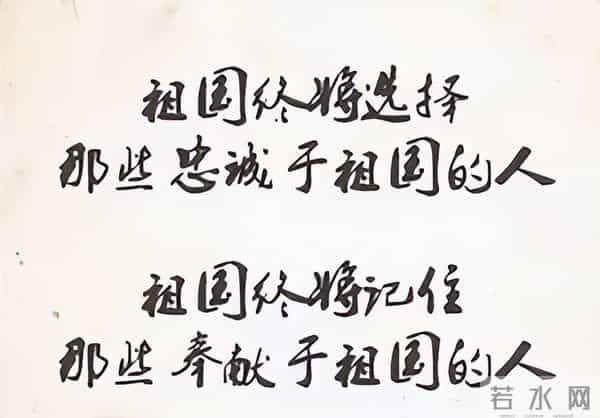 祖国终将选择
那些忠诚于祖国的人
祖国终将记住
那些奉献于祖国的人
若水网